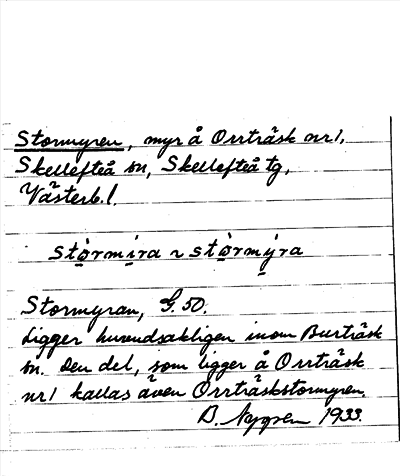 Stormyren, myr å Orrträsk nr 1,
Skellefteå sn, Skellefteå tg,
Västerb. l.
stòrmíra ~ stòrmýra
Stormyran, G. 50.
Ligger huvudsakligen inom Burträsk
sn. Den del, som ligger å Orrträsk
nr 1 kallas även Orrträskstormyren.
B. Nygren 1933.